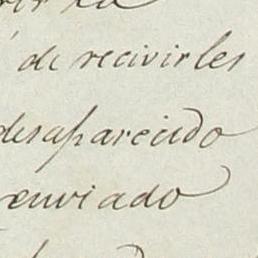 de recivirles
desaparecido
enviado